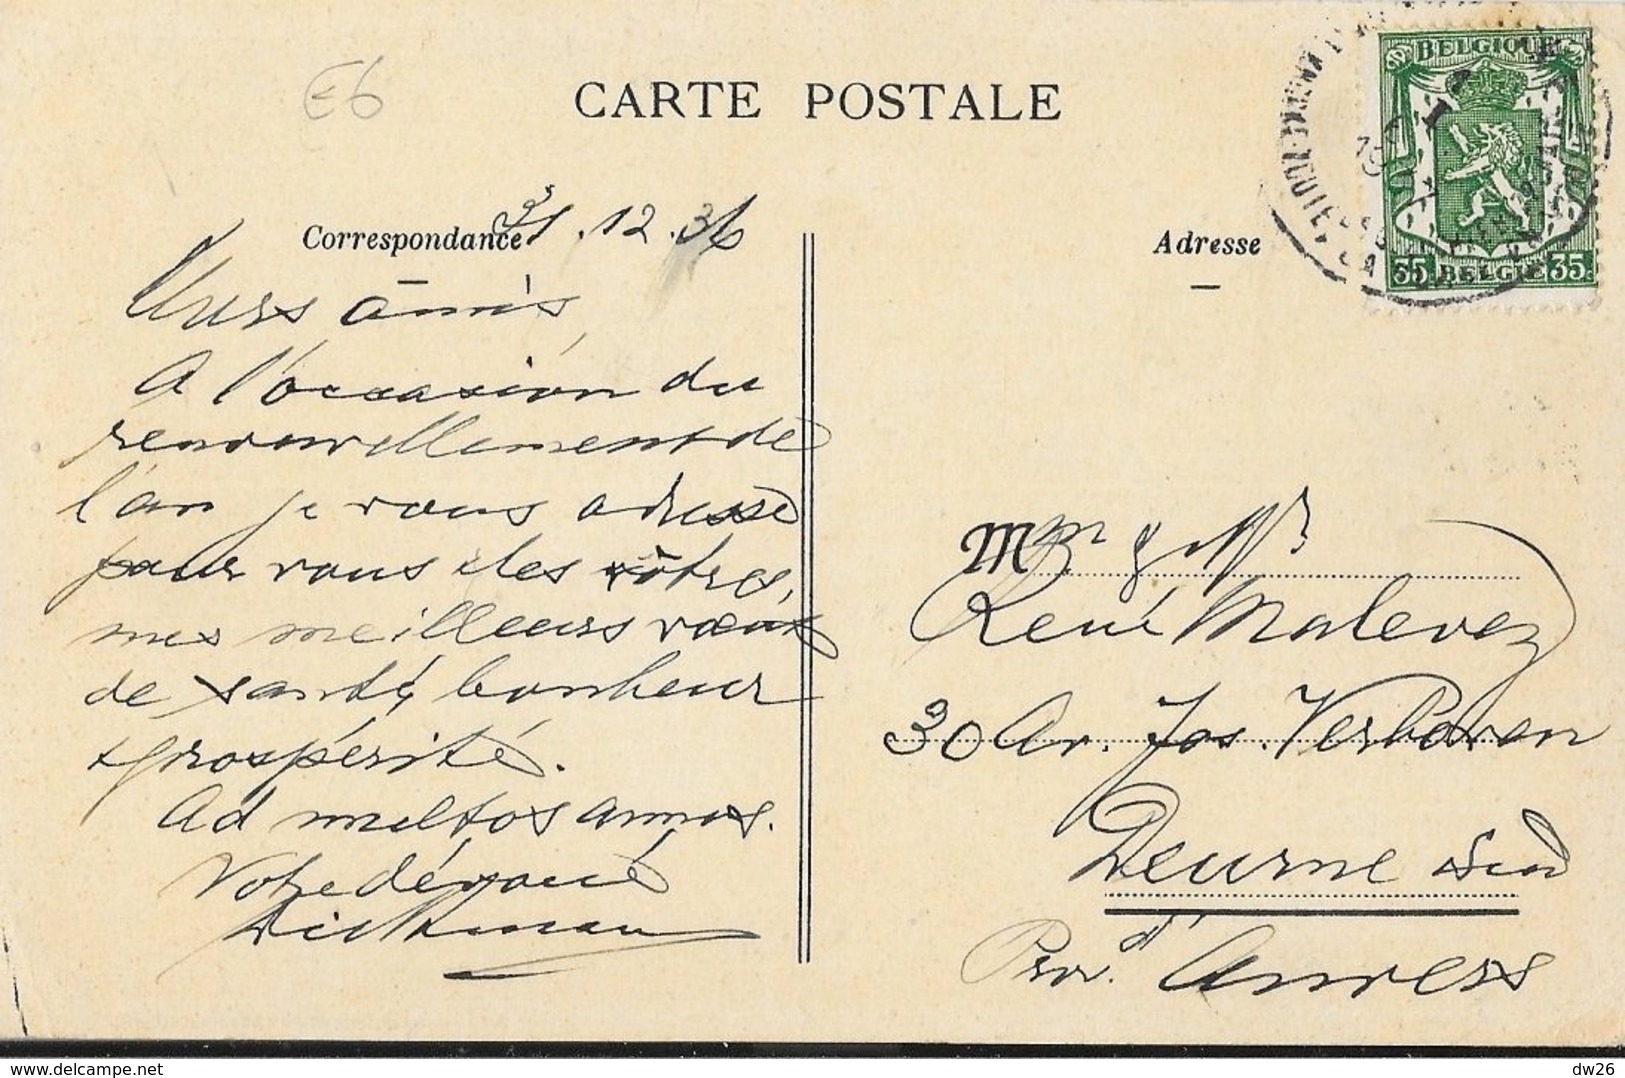 E6
CARTE POSTALE
BELGIQUE
35 BELGIE 35c
Correspondance
31.12.36
Adresse
Chers amis,
A l'occasion du
renouvellement de
l'an je vous adresse
pour vous et les vôtres,
mes meilleurs vœux
de santé, bonheur
prospérité.
Ad multos annos.
Votre dévoué
Mr & Mme
René Malevez
30 Av. Jos. Verboven
Deurne Sud
Prov. d'Anvers
dw26
delcampe.net